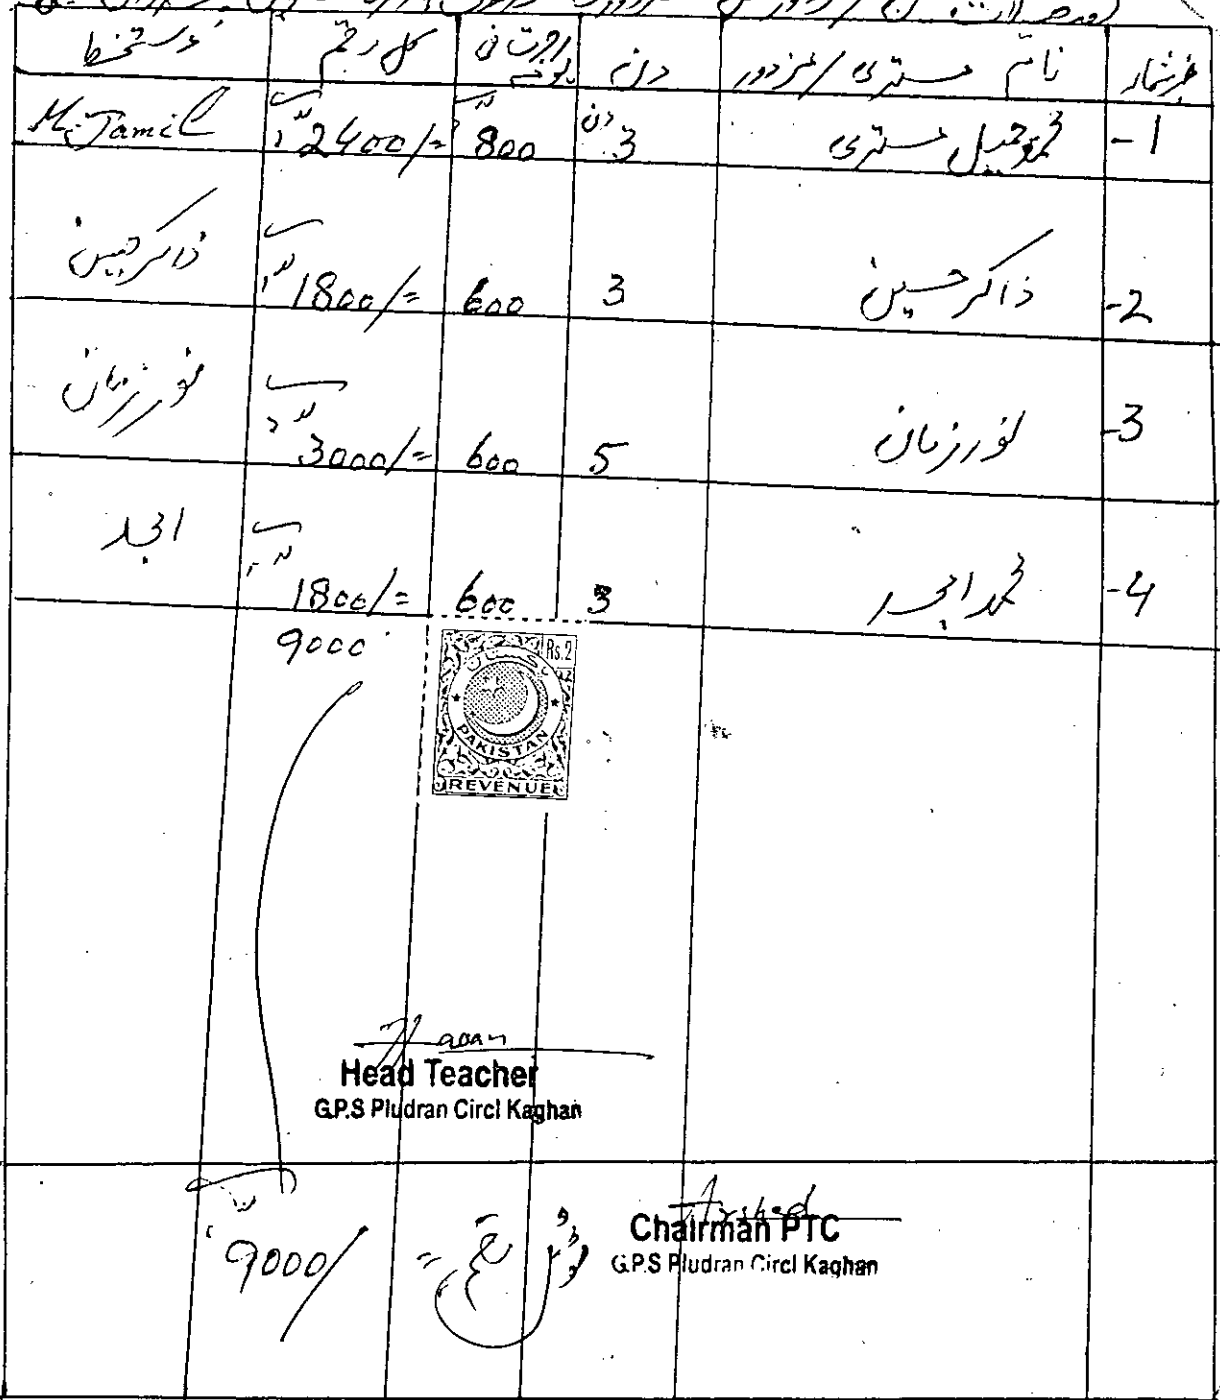 نمبر شمار نام مستری / مزدور دن اجرت فی یوم کل رقم دستخط
1- محمد جمیل مستری 3 دن 800 2400/= M. Jamil
2- ذاکر حسین 3 600 1800/= ذاکر حسین
3- نور زمان 5 600 3000/= نور زمان
4- محمد امجد 3 600 1800/= امجد
9000
پاکستان Rs.2
PAKISTAN
REVENUE
Head Teacher
G.P.S Pludran Circl Kaghan
Arshad
Chairman PTC
G.P.S Pludran Circl Kaghan
= 9000/